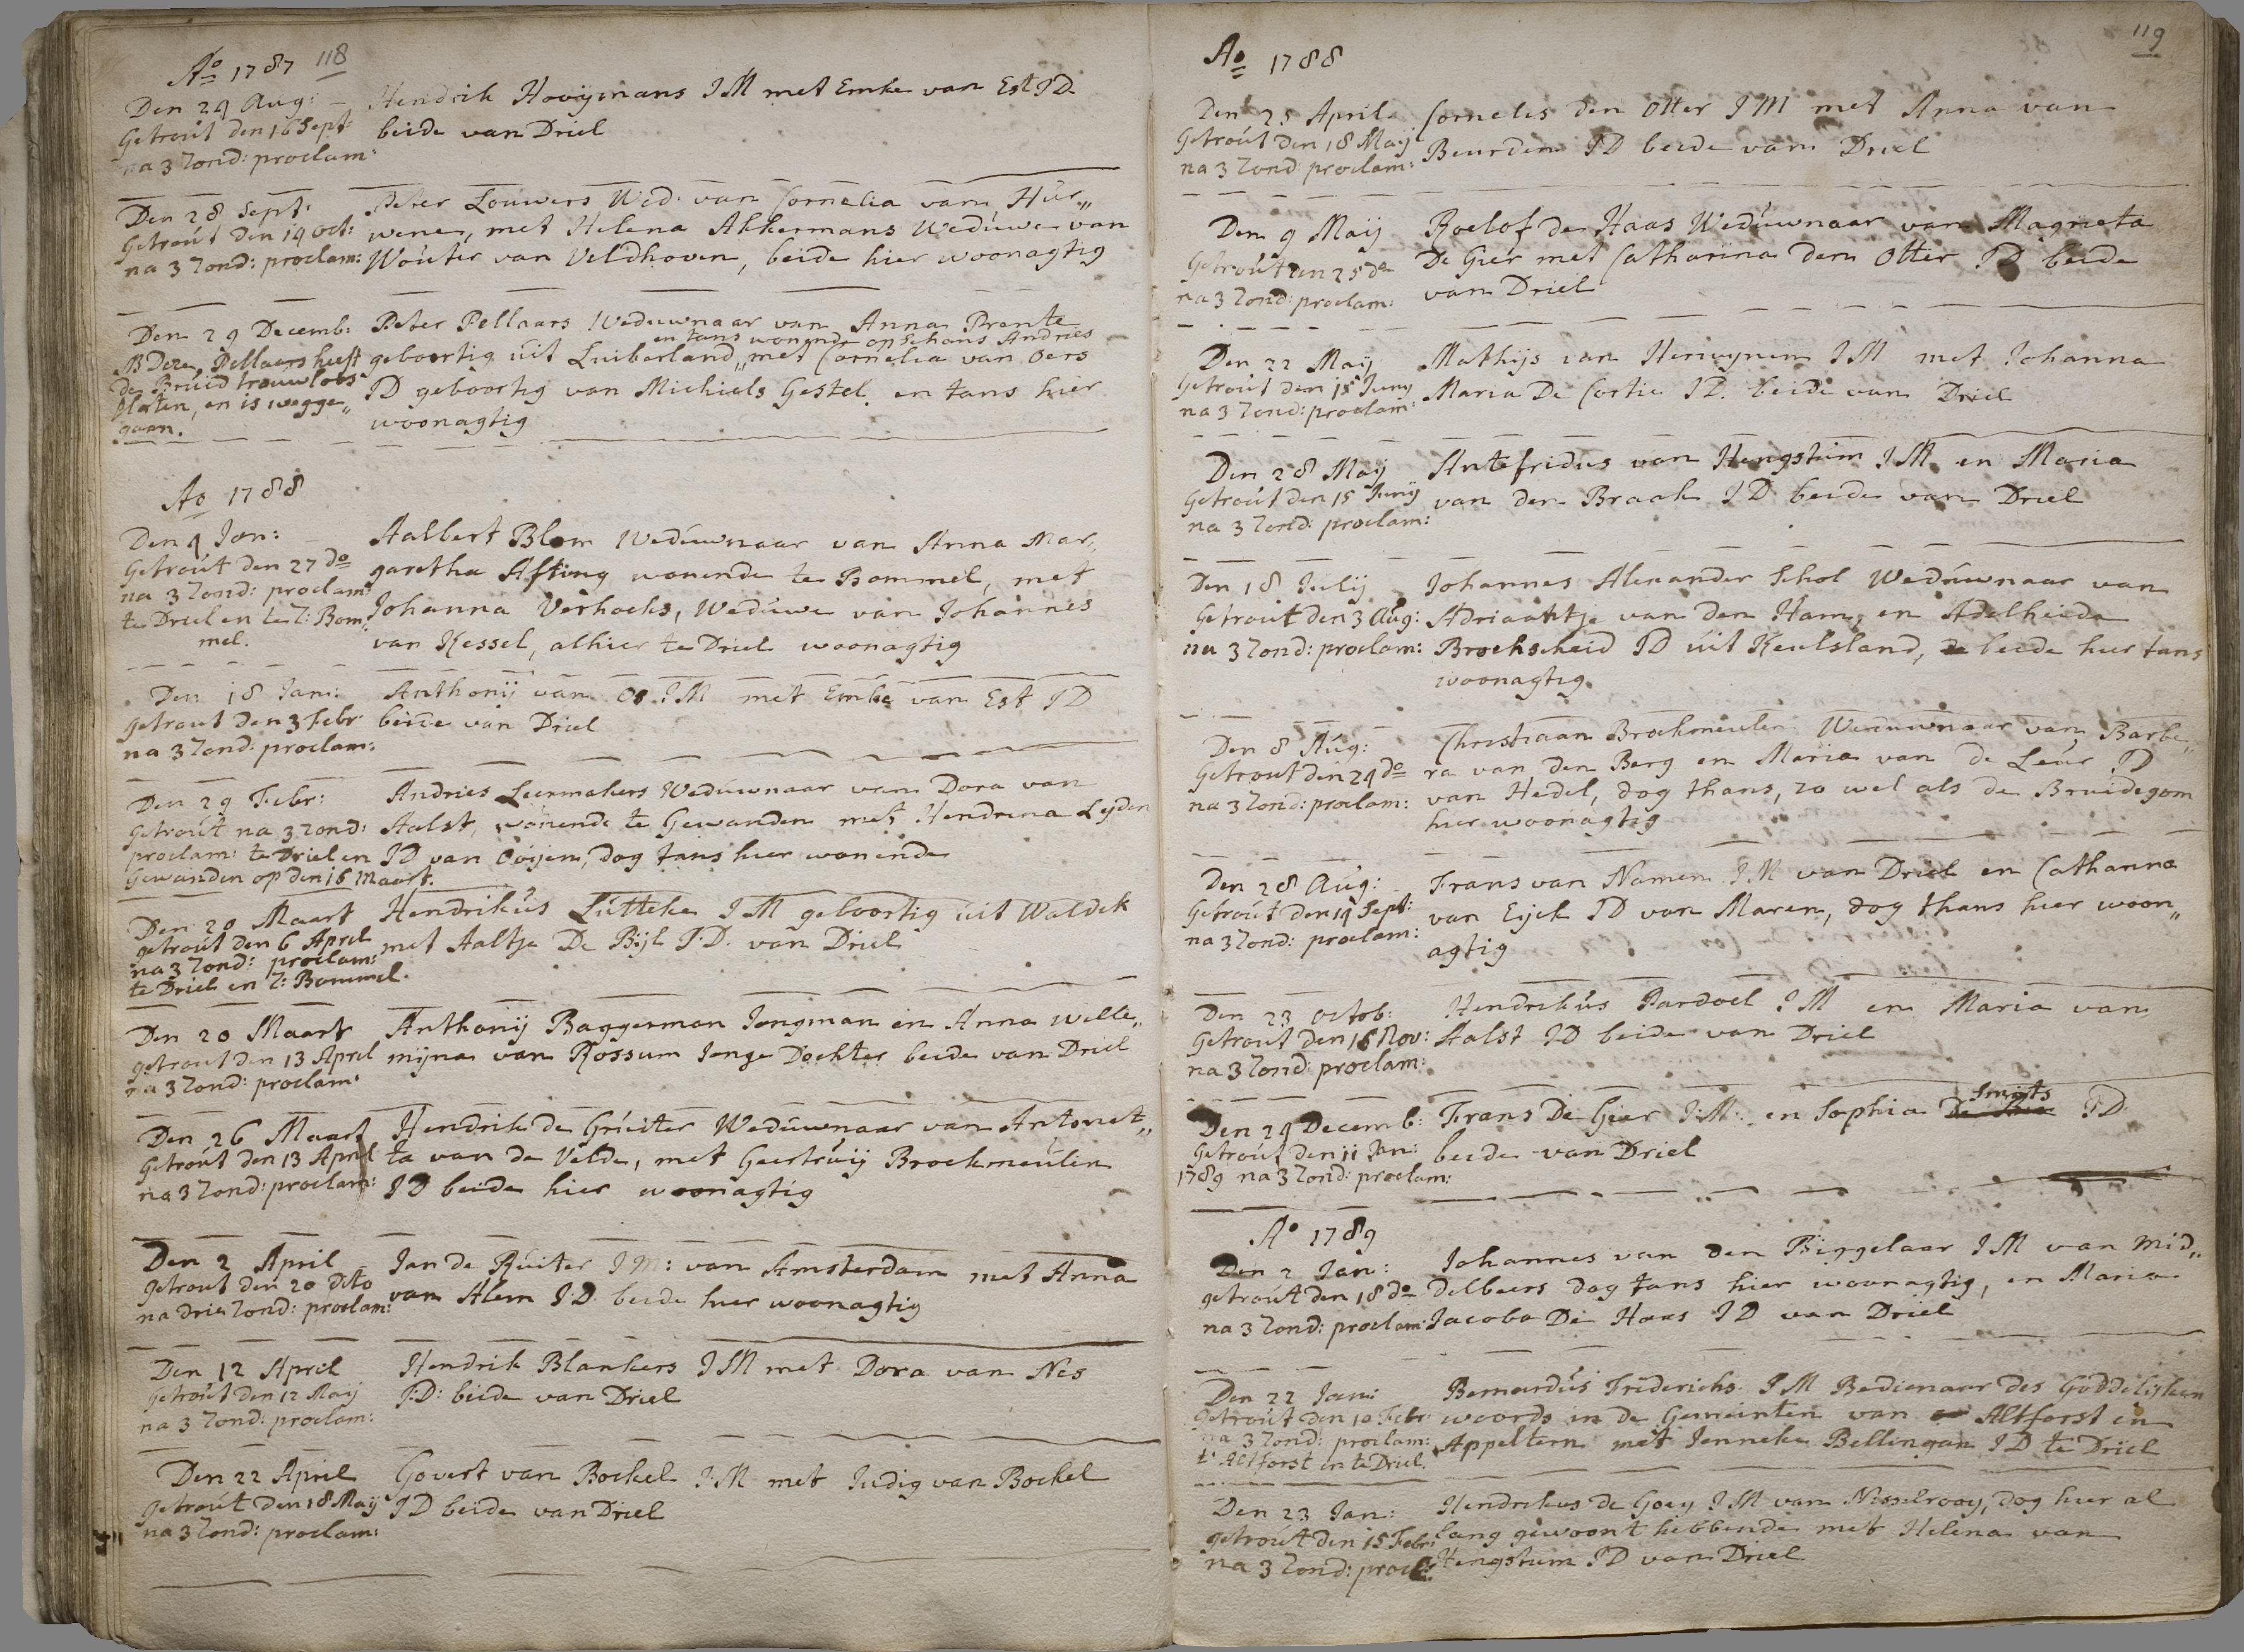 Ao 1787 118
Den 29 Aug: Hendrik Hooijmans I M met Emke van Est I D
Getrout den 16 Sept beide van Driel
na 3 Zond: proclam:
Den 28 Sept: Peter Louwers Wed: van Cornelia van Hur,,
Getrout den 14 Oct: wenen, met Helena Akkermans Weduwe van
na 3 Zond: proclam: Wouter van Veldhoven, beide hier woonagtig
Den 29 Decemb: Peter Pellaars Weduwnaar van Anna Prente
en tans wonende op Schans Andries
NB Deze Pellaars heeft geboortig uit Luikerland,, met Cornelia van Oers
de Bruid trouwloos I D geboortig van Michiels Gestel en tans hier
verlaten, en is wegge,, woonagtig
gaan.
Ao 1788
Den 4 Jan: Aalbert Blom Weduwnaar van Anna Mar,,
Getrout den 27 do garetha Afting wonende te Bommel, met
na 3 Zond: proclam: Johanna Verhoeks, Weduwe van Johannes
te Driel en te Z: Bom,, van Kessel, alhier te Driel woonagtig
mel.
Den 18 Jan: Anthonij van Os I M met Emke van Est I D
Getrout den 3 Febr beide van Driel
na 3 Zond: proclam:
Den 29 Febr: Andries Leermakers Weduwnaar van Dora van
Getrout na 3 Zond: Aalst, wonende te Gewanden met Hendrina Leijden
proclam: te Driel en I D van Ooijen, dog tans hier wonende
Gewanden op den 16 Maart.
Den 20 Maart Hendrikus Lutteke I M geboortig uit Waldek
getrout den 6 April met Aaltje De Bijl I:D: van Driel
na 3 Zond: proclam:
te Driel en Z: Bommel.
Den 20 Maart Anthonij Baggerman Jongman en Anna Wille,,
getrout den 13 April mijna van Rossum Jonge Dochter beide van Driel
na 3 Zond: proclam:
Den 26 Maart Hendrik de Gruiter Weduwnaar van Antonet,,
Getrout den 13 April ta van de Velde, met Geertruij Brockmeulen
na 3 Zond: proclam: I D beide hier woonagtig
Den 2 April Jan de Ruiter I M: van Amsterdam met Anna
Getrout den 20 dito van Alem I D beide hier woonagtig
na drie Zond: proclam:
Den 12 April Hendrik Blankers I M met Dora van Nes
Getrout den 12 Maij I:D: beide van Driel
na 3 Zond: proclam:
Den 22 April Govert van Bockel I M met Judig van Bockel
Getrout den 18 Maij I D beide van Driel
na 3 Zond: proclam:
Ao 1788 119
Den 25 April Cornelis den Otter I M met Anna van
Getrout den 18 Maij Beurden I D beide van Driel
na 3 Zond: proclam:
Den 9 Maij Roelof de Haas Weduwnaar van Magrieta
Getrout den 25 do De Gier met Catharina den Otter I D beide
na 3 Zond: proclam: van Driel
Den 22 Maij Mathijs van Herwijnen I M met Johanna
Getrout den 15 Junij Maria De Cortie I D. beide van Driel
na 3 Zond: proclam:
Den 28 Maij Antefridus van Hengstum I M en Maria
Getrout den 15 Junij van den Braak I D beide van Driel
na 3 Zond: proclam:
Den 18 Julij Johannes Alexander Schol Weduwnaar van
Getrout den 3 Aug: Adriaantje van den Ham, en Adelheida
na 3 Zond: proclam: Brockscheid I D uit Keulsland, beide hier tans
woonagtig
Den 8 Aug: Christiaan Brockmeulen Weduwnaar van Barbe,,
Getrout den 24 do ra van den Berg en Maria van de Leur I D
na 3 Zond: proclam: van Hedel, dog thans, zo wel als de Bruidegom
hier woonagtig
Den 28 Aug: Frans van Namen I M van Driel en Catharina
Getrout den 14 Sept: van Eijck I D van Maren, dog thans hier woon,,
na 3 Zond: proclam: agtig
Den 23 Octob: Hendrikus Pardoel I M en Maria van
Getrout den 16 Nov: Aalst I D beide van Driel
na 3 Zond: proclam:
Smits
Den 24 Decemb: Frans De Gier I:M: en Sophia De I D
Getrout den 11 Jan: beide van Driel
1789 na 3 Zond: proclam:
Ao 1789
Den 2 Jan: Johannes van den Biggelaar I M van Mid,,
getrout den 18 do delbeers dog tans hier woonagtig, en Maria
na 3 Zond: proclam: Jacoba De Haas I D van Driel
Den 22 Jan: Bernardus Friderichs I M Bedienaar des Goddelijken
Getrout den 10 Febr woords in de Gemeinten van Altforst en
na 3 Zond: proclam: Appeltern met Jenneke Bellingan I D te Driel
t' Altforst en te Driel.
Den 23 Jan: Hendrikus de Goey I M van Nisselrooy, dog hier al
getrout den 15 Febr: lang gewoont hebbende met Helena van
na 3 Zond: procl: Hengstum I D van Driel